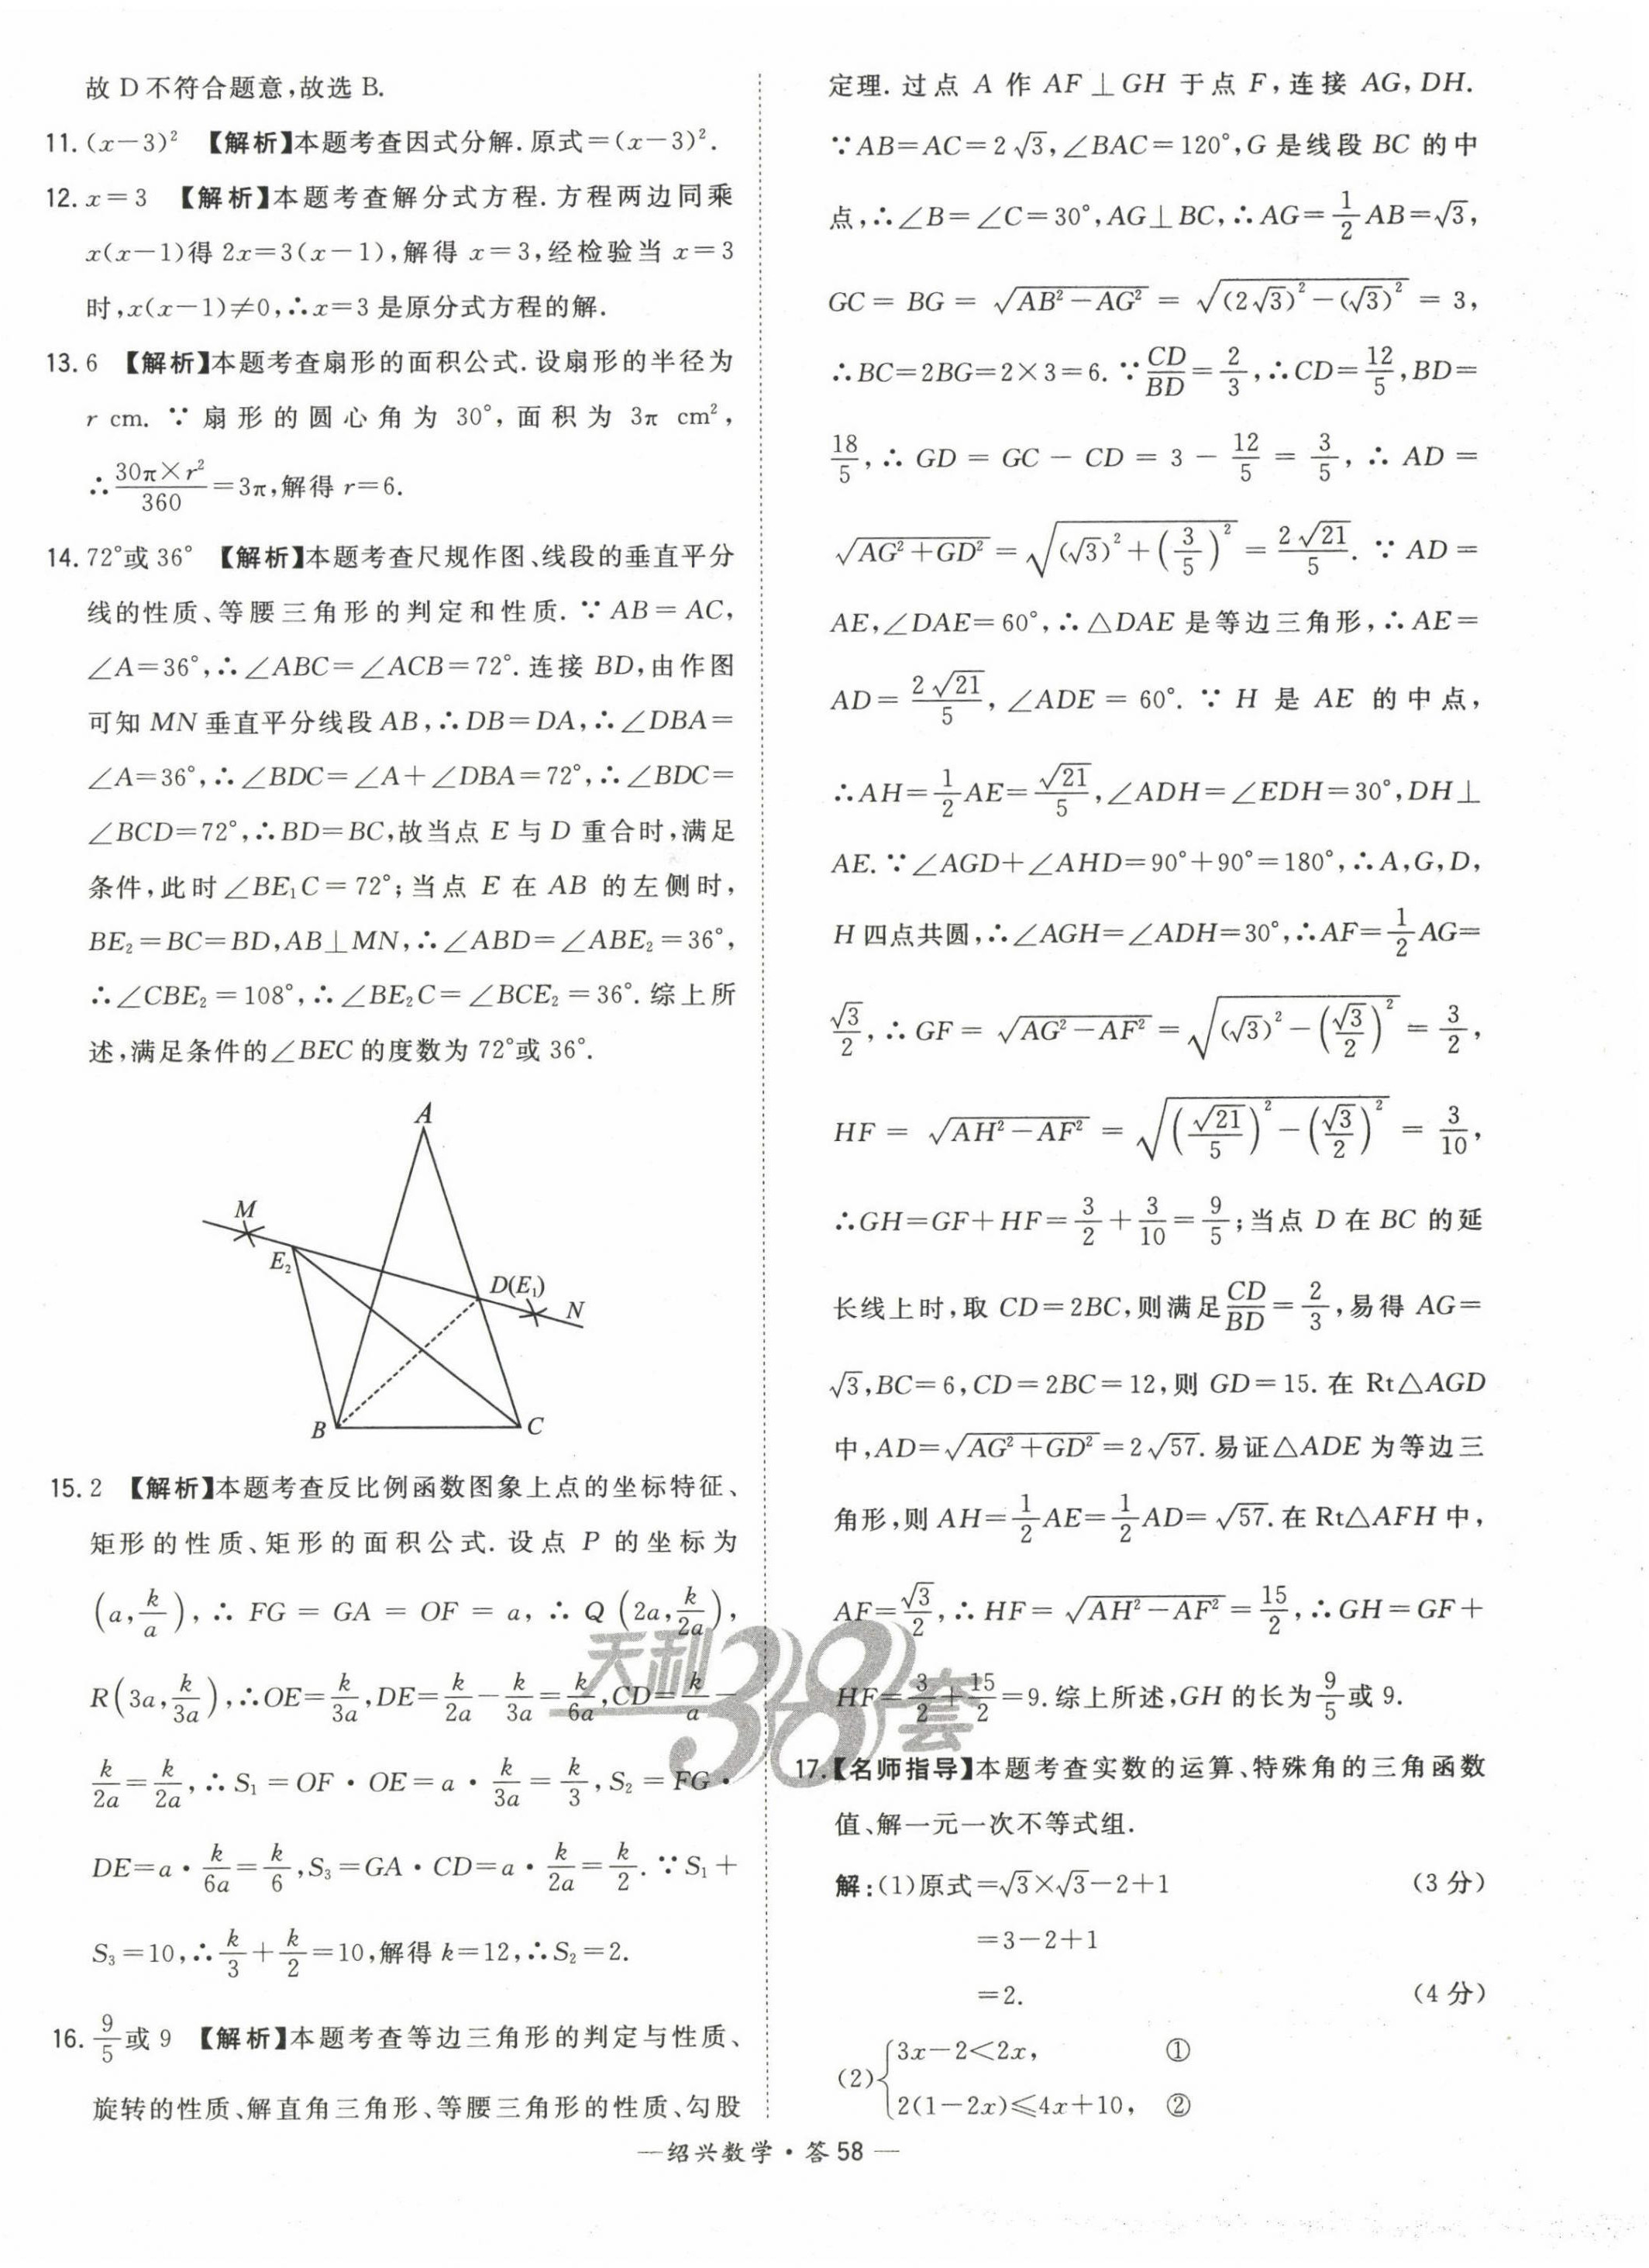 故 D 不符合题意,故选 B.
11. (x-3)² 【解析】本题考查因式分解. 原式=(x-3)².
12. x=3 【解析】本题考查解分式方程. 方程两边同乘
x(x-1)得 2x=3(x-1),解得 x=3,经检验当 x=3
时,x(x-1)≠0,∴x=3 是原分式方程的解.
13. 6 【解析】本题考查扇形的面积公式. 设扇形的半径为
r cm. ∵ 扇形的圆心角为 30°,面积为 3π cm²,
∴(30π×r²)/360=3π,解得 r=6.
14. 72°或 36° 【解析】本题考查尺规作图、线段的垂直平分
线的性质、等腰三角形的判定和性质. ∵ AB=AC,
∠A=36°,∴∠ABC=∠ACB=72°. 连接 BD,由作图
可知 MN 垂直平分线段 AB,∴DB=DA,∴∠DBA=
∠A=36°,∴∠BDC=∠A+∠DBA=72°,∴∠BDC=
∠BCD=72°,∴BD=BC,故当点 E 与 D 重合时,满足
条件,此时∠BE₁C=72°;当点 E 在 AB 的左侧时,
BE₂=BC=BD,AB⊥MN,∴∠ABD=∠ABE₂=36°,
∴∠CBE₂=108°,∴∠BE₂C=∠BCE₂=36°. 综上所
述,满足条件的∠BEC 的度数为 72°或 36°.
A
M
E₂
D(E₁)
N
B
C
15. 2 【解析】本题考查反比例函数图象上点的坐标特征、
矩形的性质、矩形的面积公式. 设点 P 的坐标为
(a,k/a),∴ FG=GA=OF=a,∴ Q(2a,k/2a),
R(3a,k/3a),∴OE=k/3a,DE=k/2a-k/3a=k/6a,CD=k/a-
k/2a=k/2a,∴S₁=OF·OE=a·k/3a=k/3,S₂=FG·
DE=a·k/6a=k/6,S₃=GA·CD=a·k/2a=k/2. ∵S₁+
S₃=10,∴k/3+k/2=10,解得 k=12,∴S₂=2.
16. 9/5或 9 【解析】本题考查等边三角形的判定与性质、
旋转的性质、解直角三角形、等腰三角形的性质、勾股
定理. 过点 A 作 AF⊥GH 于点 F,连接 AG,DH.
∵AB=AC=2√3,∠BAC=120°,G 是线段 BC 的中
点,∴∠B=∠C=30°,AG⊥BC,∴AG=1/2 AB=√3,
GC=BG=√(AB²-AG²)=√((2√3)²-(√3)²)=3,
∴BC=2BG=2×3=6. ∵CD/BD=2/3,∴CD=12/5,BD=
18/5,∴GD=GC-CD=3-12/5=3/5,∴AD=
√(AG²+GD²)=√((√3)²+(3/5)²)=2√21/5. ∵AD=
AE,∠DAE=60°,∴△DAE 是等边三角形,∴AE=
AD=2√21/5,∠ADE=60°. ∵ H 是 AE 的中点,
∴AH=1/2 AE=√21/5,∠ADH=∠EDH=30°,DH⊥
AE. ∵∠AGD+∠AHD=90°+90°=180°,∴A,G,D,
H 四点共圆,∴∠AGH=∠ADH=30°,∴AF=1/2 AG=
√3/2,∴GF=√(AG²-AF²)=√((√3)²-(√3/2)²)=3/2,
HF=√(AH²-AF²)=√((√21/5)²-(√3/2)²)=3/10,
∴GH=GF+HF=3/2+3/10=9/5;当点 D 在 BC 的延
长线上时,取 CD=2BC,则满足CD/BD=2/3,易得 AG=
√3,BC=6,CD=2BC=12,则 GD=15. 在 Rt△AGD
中,AD=√(AG²+GD²)=2√57. 易证△ADE 为等边三
角形,则 AH=1/2 AE=1/2 AD=√57. 在 Rt△AFH 中,
AF=√3/2,∴HF=√(AH²-AF²)=15/2,∴GH=GF+
HF=3/2+15/2=9. 综上所述,GH 的长为9/5或 9.
17.【名师指导】本题考查实数的运算、特殊角的三角函数
值、解一元一次不等式组.
解:(1)原式=√3×√3-2+1 (3 分)
=3-2+1
=2. (4 分)
(2){3x-2<2x, ①
2(1-2x)≤4x+10, ②
天利38套
—绍兴数学·答 58—